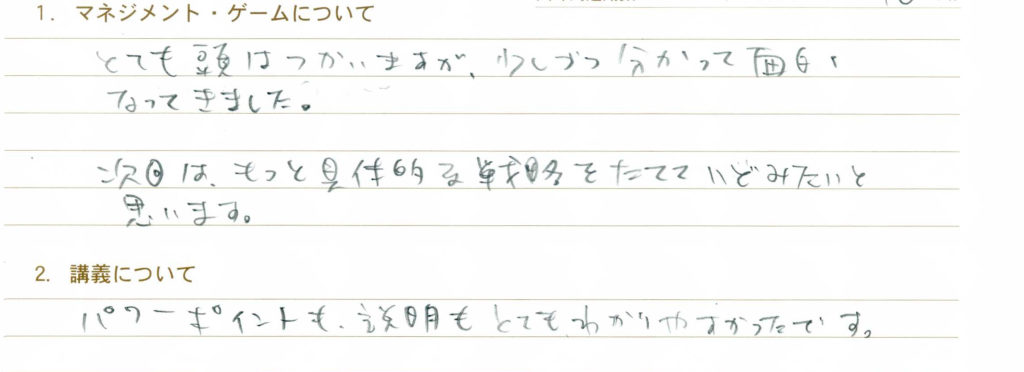 1. マネジメント・ゲームについて
とても頭はつかいますが、少しづつ分かって面白く
なってきました。
次回は、もっと具体的な戦略をたてていどみたいと
思います。
2. 講義について
パワーポイントも、説明もとてもわかりやすかったです。